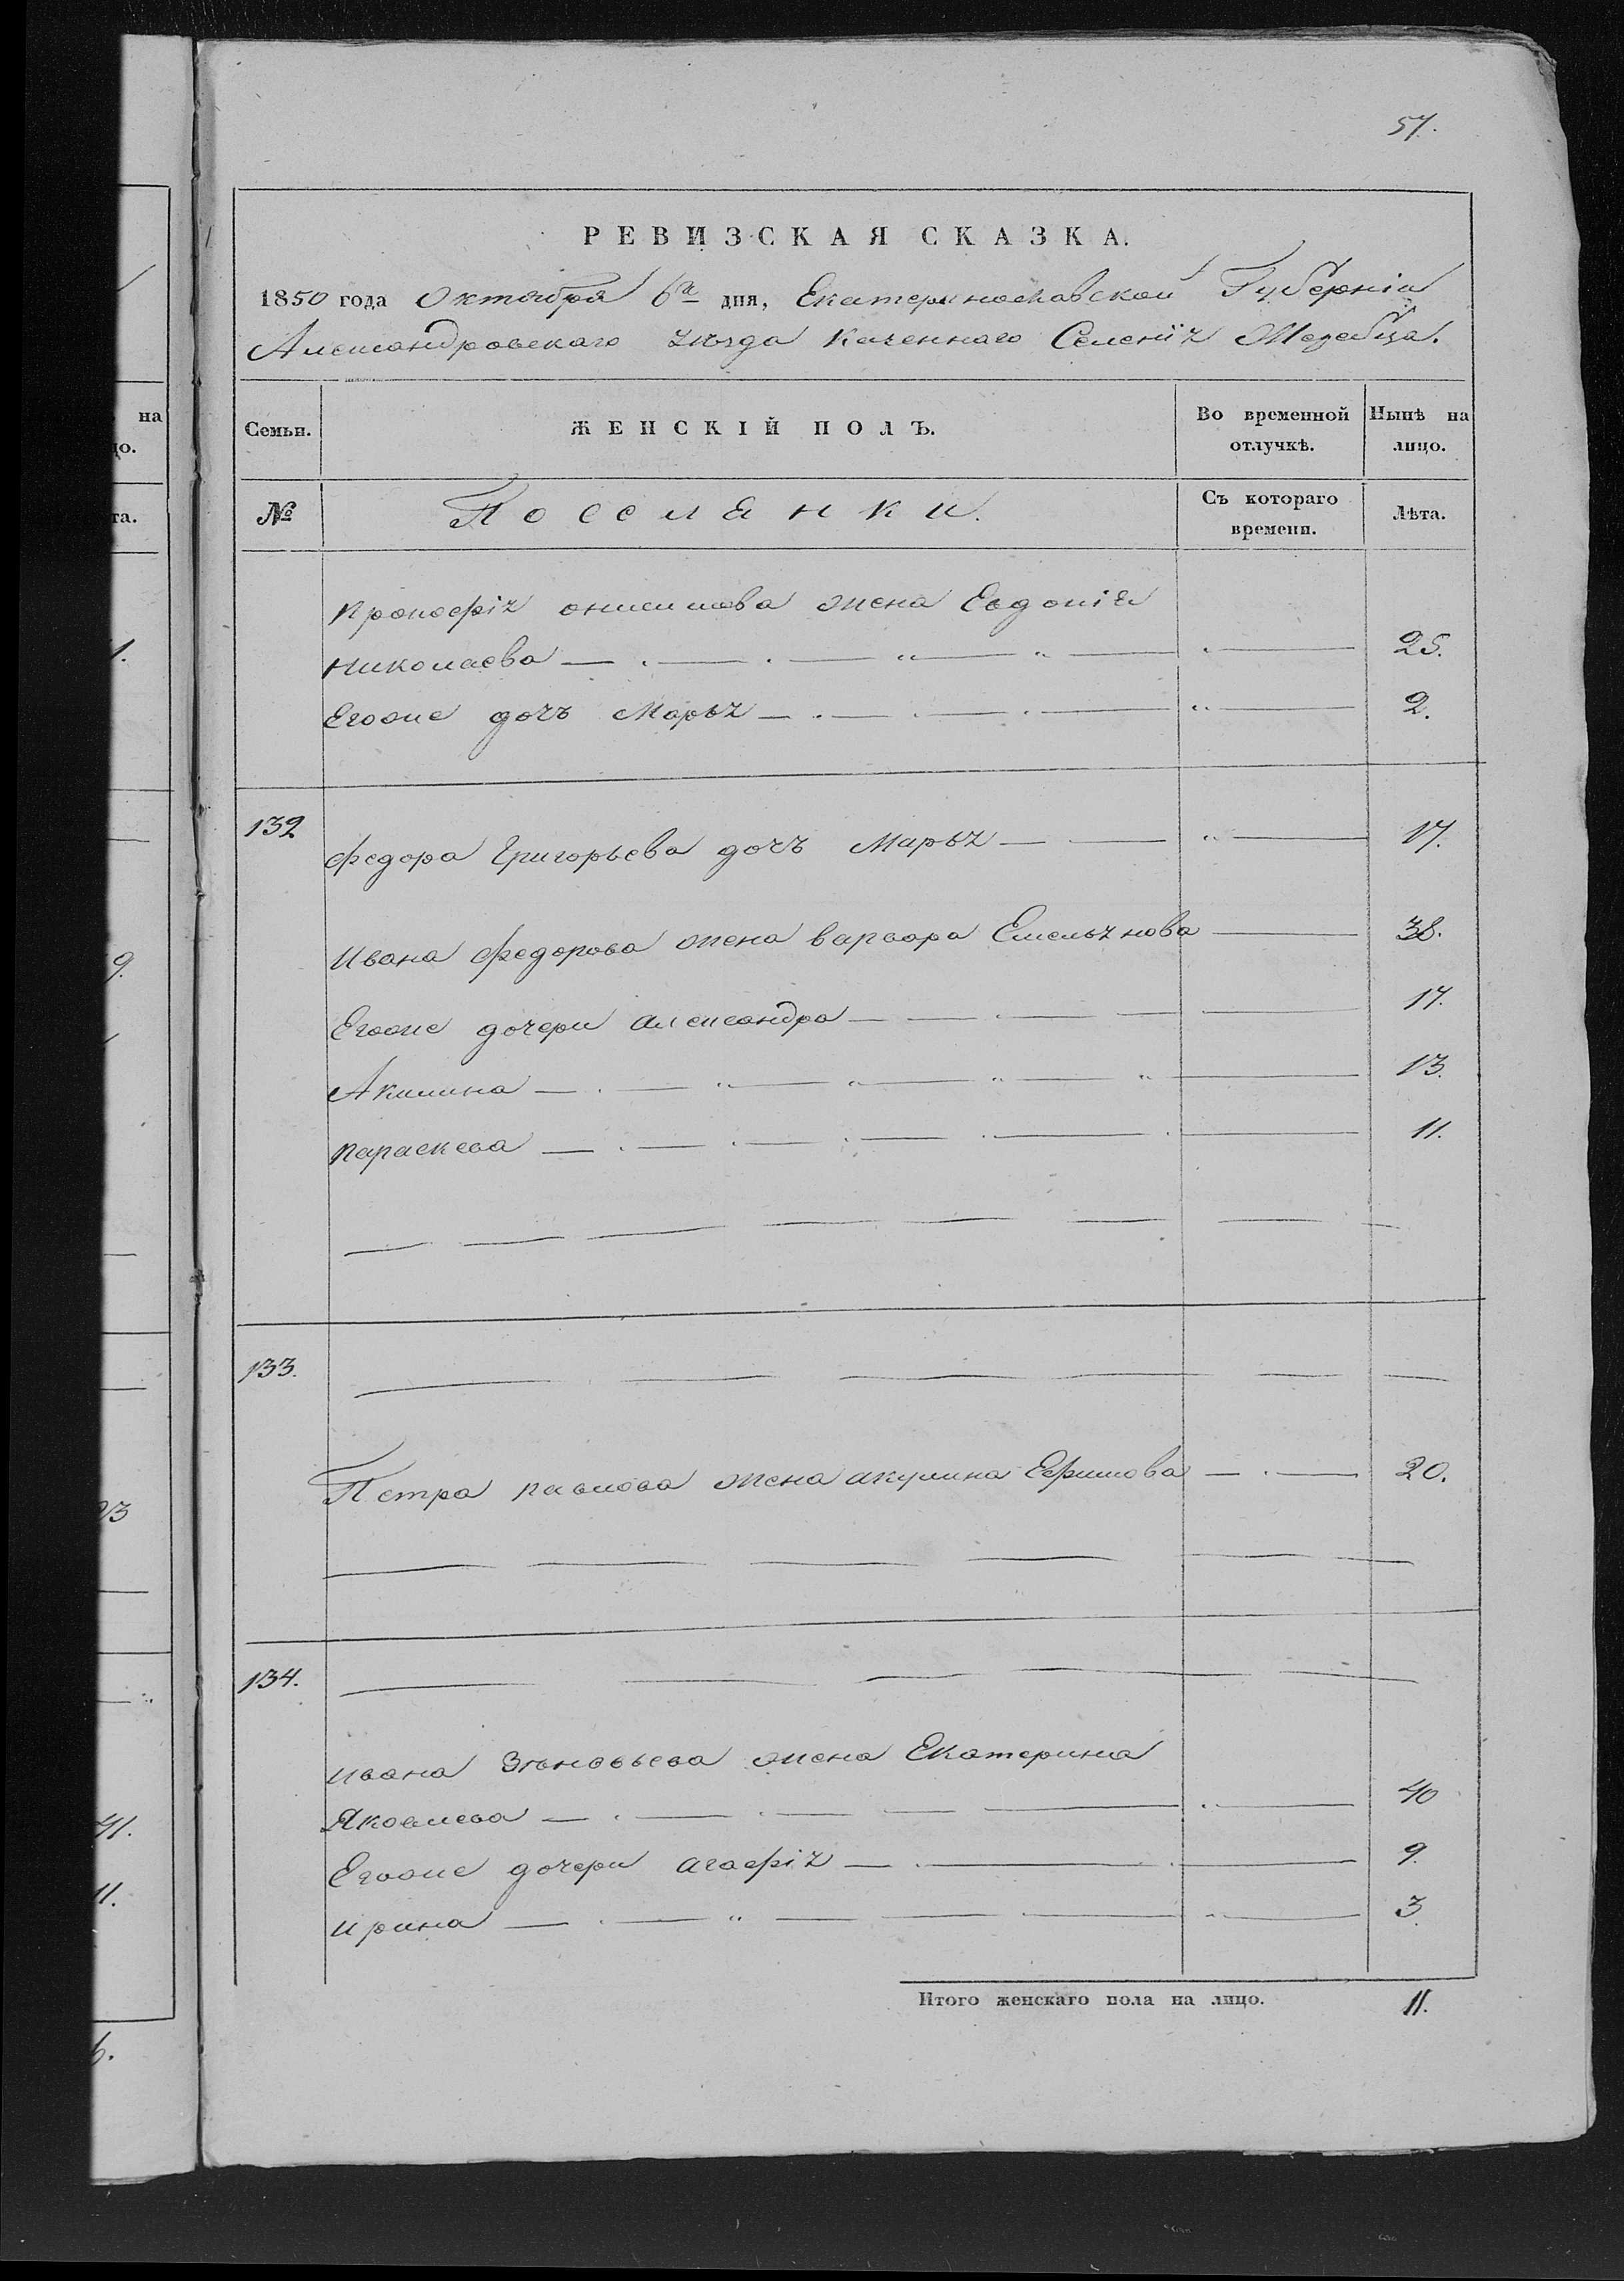 57.
РЕВИЗСКАЯ СКАЗКА.
1850 года Октября 6го дня, Екатеринославской Губерніи
Александровскаго уѣзда Казеннаго Селенія Жеребца.
Семьи. ЖЕНСКІЙ ПОЛЪ. Во временной отлучкѣ. Нынѣ на лицо.
№ Поселянки. Съ котораго времени. Лѣта.
Прокофія Онисимова жена Евдокія
Николаева 25.
Егоже дочь Марья 2.
132 Федора Григорьева дочь Марья 17.
Ивана Федорова жена Варвара Емельянова 38.
Егоже дочери Александра 17.
Акилина 13.
Параскева 11.
133.
Петра Павлова жена Акулина Ефимова 20.
134.
Ивана Зѣновьева жена Екатерина
Яковлева 40
Егоже дочери Агафія 9.
Ирина 3.
Итого женскаго пола на лицо. 11.
на
та.
1.
9.
23
41.
11.
6.